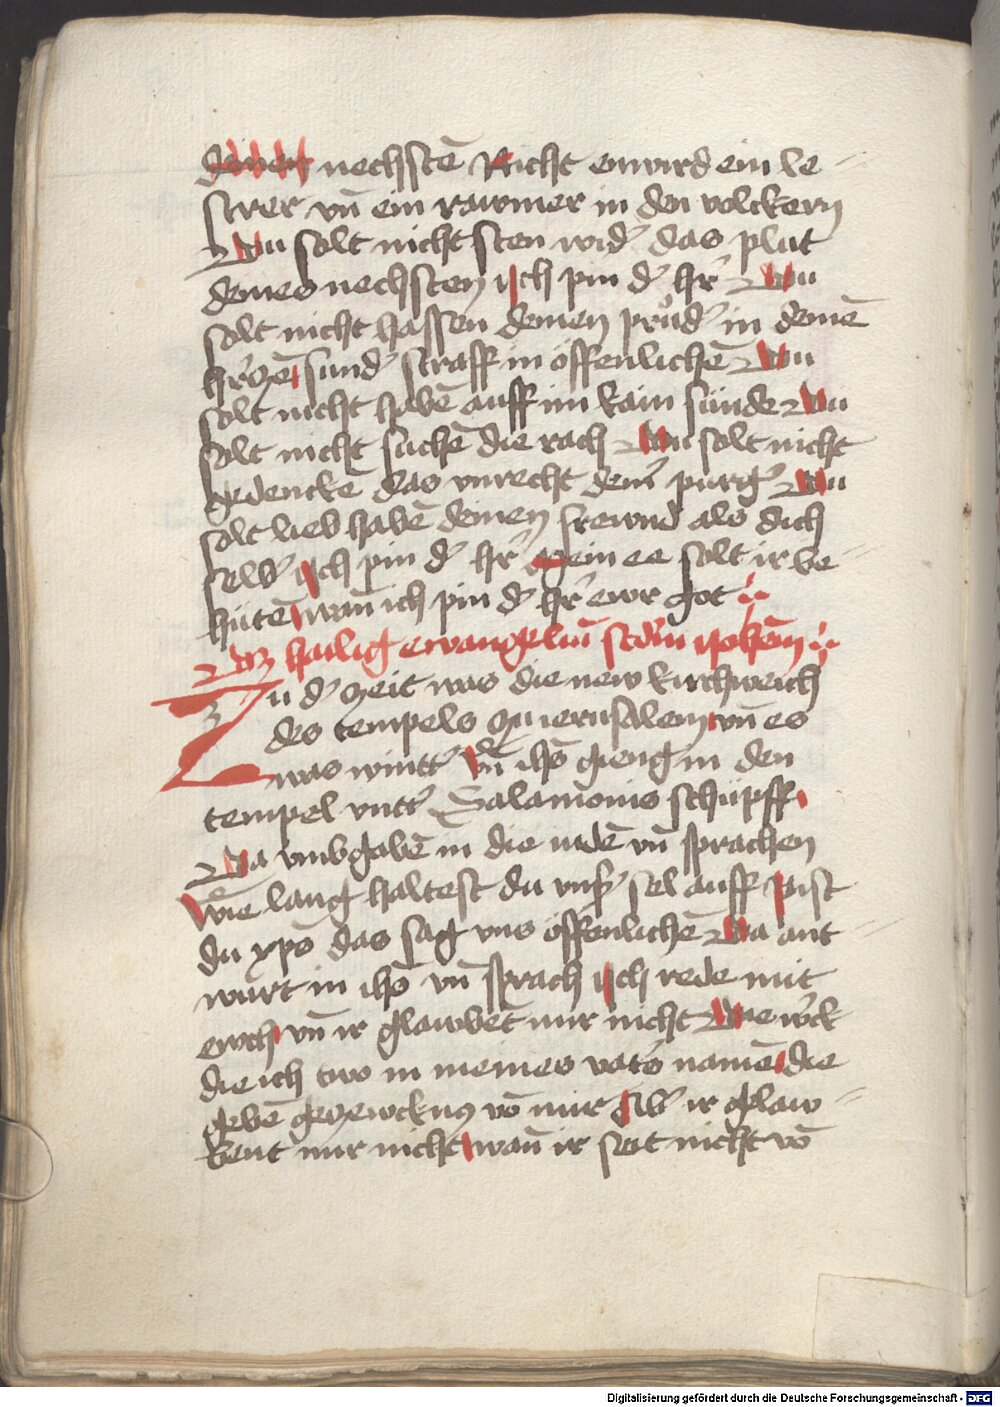 deinen nechstē Nicht enwird ein le⸗
strer vn̄ ein rawmer in den volckern
Du solt nicht sten wid̕ das plut
deines nechsten Jch pin d̕ hr̄ Du
solt nicht hassen deinen průd̕ in deinē
hr̄czē sund̕ straff in öffenlichē Du
solt nicht habē auff im kain sünde Du
solt nicht suchē die rach Du solt nicht
gedencke das vnrecht dein̕ purg̕ Du
solt lieb habē deinen frewnd als dich
selb̕ Jch pin d̕ hr̄ mein ee solt ir be⸗
hütē wan̄ ich pin d̕ hr̄ ewr got
Daz hailig ewangeliū scdm̄ Johēm
Zu d̕ czeit was die new kirchweich
des tempels czu ierusalem vn̄ es
was wintt̕ Vn̄ ihs̄ gieng in den
tempel vntt̕ Salamonis schüpff
Da vmbgabē in die iudē vn̄ sprachen
Wie lang haltest du vnß̕ sel auff Pist
du xp̄s das sag vns öffenlichē Da ant⸗
wurt in ihs̄ vn̄ sprach Jch rede mit
ewch vn̄ ir glawbet mir nicht Die w̕ck
die ich two in meines vat̕s namē die
gebē geczewcknuß vō mir Sūd̕ ir glaw⸗
bent mir nicht wan̄ ir seit nicht vō
Digitalisierung gefördert durch die Deutsche Forschungsgemeinschaft - DFG